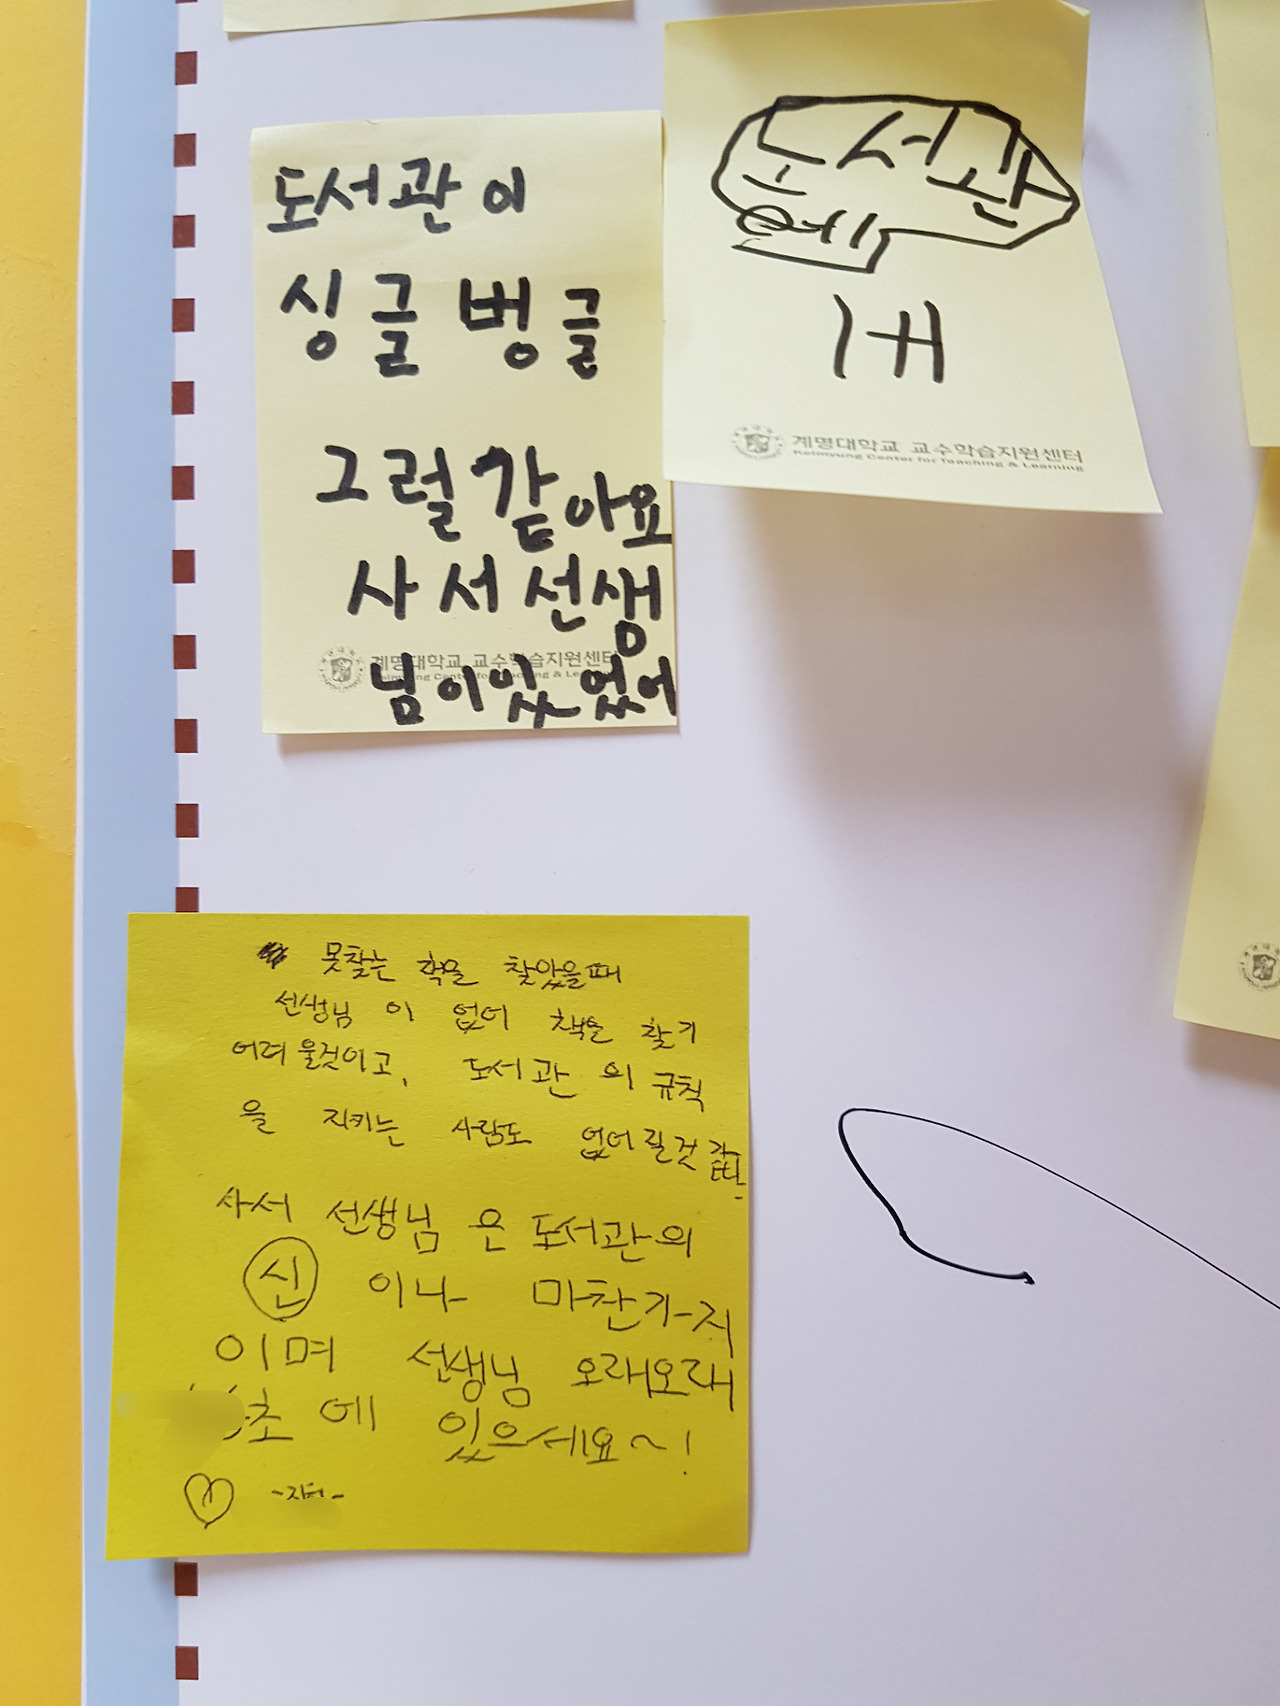 도서관이
싱글벙글
그럴같아요
사서선생
님이있 없어
계명대학교 교수학습지원센터
도서관
에
계명대학교 교수학습지원센터
Keimyung Center for Teaching & Learning
못찾는 책을 찾았을때
선생님이 없어 책을 찾기
어려울것이고, 도서관의 규칙
을 지키는 사람도 없어질것 같다.
사서 선생님은 도서관의
신 이나 마찬가지
이며 선생님 오래오래
초에 있으세요~!